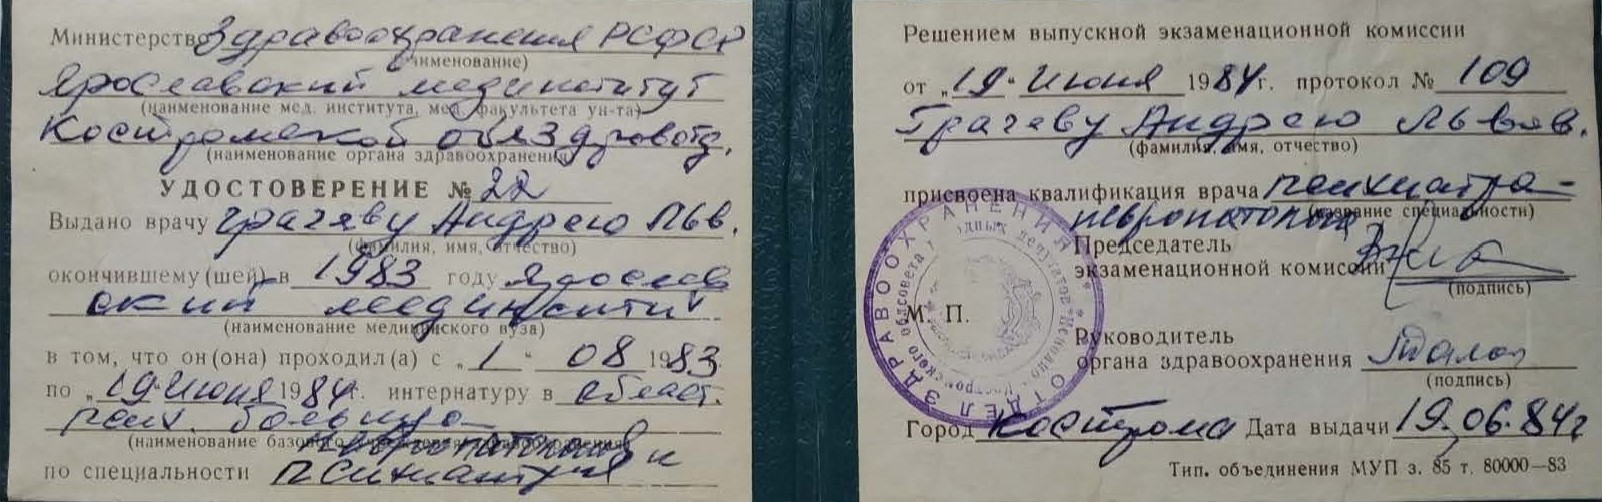 Министерство Здравоохранения РСФСР
(наименование)
Ярославский мединститут
(наименование мед. института, мед. факультета ун-та)
Костромской облздравотд.
(наименование органа здравоохранения)
УДОСТОВЕРЕНИЕ № 22
Выдано врачу Грачеву Андрею Льв.
(фамилия, имя, отчество)
окончившему (шей) в 1983 году Ярослав
ский мединститут
(наименование медицинского вуза)
в том, что он (она) проходил (а) с „1" 08 1983
по „19" Июня 1984г. интернатуру в област.
псих. больнице
(наименование базового учреждения здравоохранения)
по специальности психиатрия и
Решением выпускной экзаменационной комиссии
от „19" Июня 1984г. протокол № 109
Грачеву Андрею Львов.
(фамилия, имя, отчество)
присвоена квалификация врача психиатра-
невропатолога
(название специальности)
Председатель
экзаменационной комиссии
(подпись)
М. П.
Руководитель
органа здравоохранения
(подпись)
Город Кострома Дата выдачи 19.06.84г
Тип. объединения МУП з. 85 т. 80000—83
ОТДЕЛ ЗДРАВООХРАНЕНИЯ